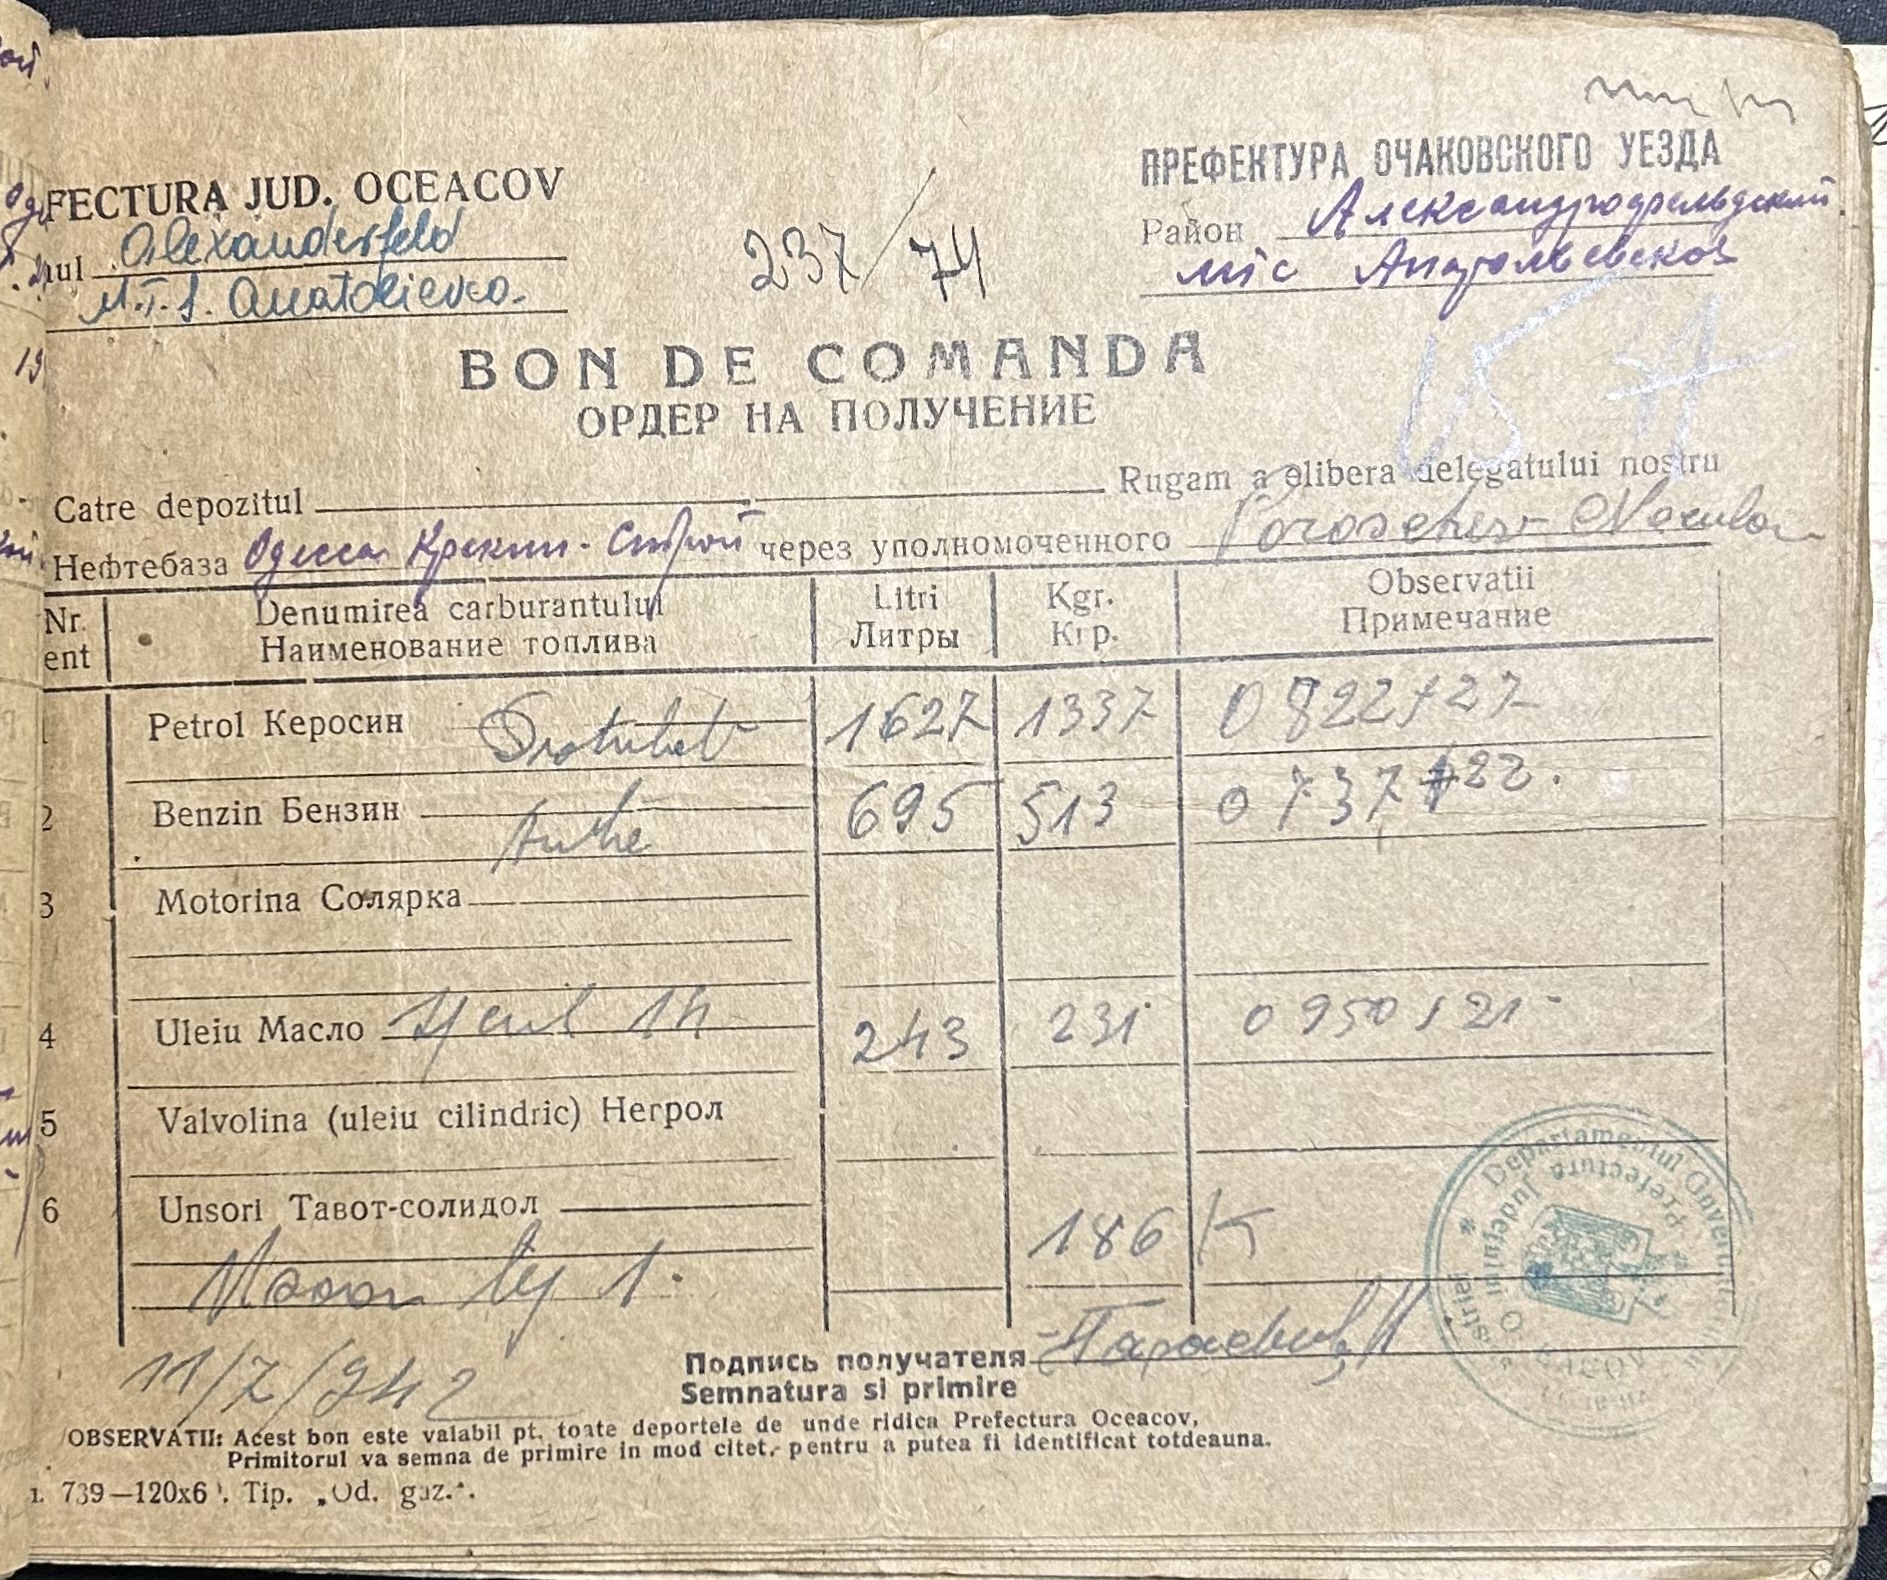 FECTURA JUD. OCEACOV
ПРЕФЕКТУРА ОЧАКОВСКОГО УЕЗДА
nul Alexanderfeld
Район Александрофельдский
M.T.S. Anatolievca.
мтс Анатольевской
237/74
BON DE COMANDA
ОРДЕР НА ПОЛУЧЕНИЕ
Catre depozitul Rugam a elibera delegatului nostru
Нефтебаза Одесса Крекин-Строй через уполномоченного
Nr. Denumirea carburantului Litri Kgr. Observatii
ent Наименование топлива Литры Кгр. Примечание
1 Petrol Керосин 1627 1337 0822 t 27
2 Benzin Бензин 695 513 0737 22.
3 Motorina Солярка
4 Uleiu Масло 243 231 0950 t 21
5 Valvolina (uleiu cilindric) Негрол
6 Unsori Тавот-солидол
186 K
11/7/942
Подпись получателя
Semnatura si primire
OBSERVATII: Acest bon este valabil pt. toate deportele de unde ridica Prefectura Oceacov.
Primitorul va semna de primire in mod citet, pentru a putea fi identificat totdeauna.
739—120x6 Tip. „Od. gaz.".
Departamentul
Prefectura Judeţului